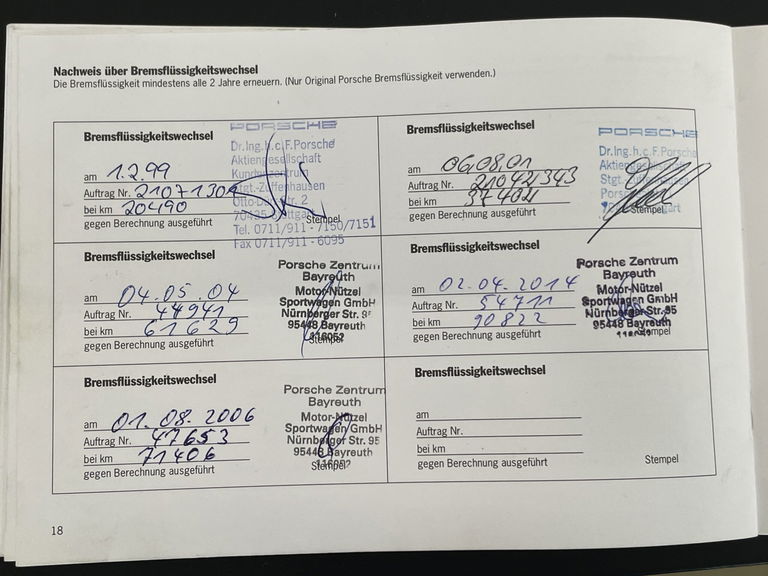 Nachweis über Bremsflüssigkeitswechsel
Die Bremsflüssigkeit mindestens alle 2 Jahre erneuern. (Nur Original Porsche Bremsflüssigkeit verwenden.)
Bremsflüssigkeitswechsel
am 1.2.99
Auftrag Nr.
bei km 20490
gegen Berechnung ausgeführt
PORSCHE
Dr.Ing.h.c.F.Porsche
Aktiengesellschaft
Kundenzentrum
Stgt.-Zuffenhausen
70435 Stuttgart
Stempel
Tel. 0711/911 - 7150/7151
Fax 0711/911 - 6095
Bremsflüssigkeitswechsel
am 06.08.01
Auftrag Nr.
bei km
gegen Berechnung ausgeführt
PORSCHE
Dr.Ing.h.c.F.Porsche
Stempel
Bremsflüssigkeitswechsel
am 04.05.04
Auftrag Nr. 44941
bei km 61629
gegen Berechnung ausgeführt
Porsche Zentrum
Bayreuth
Motor-Nützel
Sportwagen GmbH
Nürnberger Str.
95448 Bayreuth
116052
Stempel
Bremsflüssigkeitswechsel
am 02.04.2014
Auftrag Nr. 54711
bei km 90822
gegen Berechnung ausgeführt
Porsche Zentrum
Bayreuth
Motor-Nützel
Sportwagen GmbH
Nürnberger Str. 95
95448 Bayreuth
Stempel
Bremsflüssigkeitswechsel
am 01.08.2006
Auftrag Nr. 47653
bei km 71406
gegen Berechnung ausgeführt
Porsche Zentrum
Bayreuth
Motor-Nützel
Sportwagen GmbH
Nürnberger Str. 95
95448 Bayreuth
116052
Stempel
Bremsflüssigkeitswechsel
am
Auftrag Nr.
bei km
gegen Berechnung ausgeführt
Stempel
18